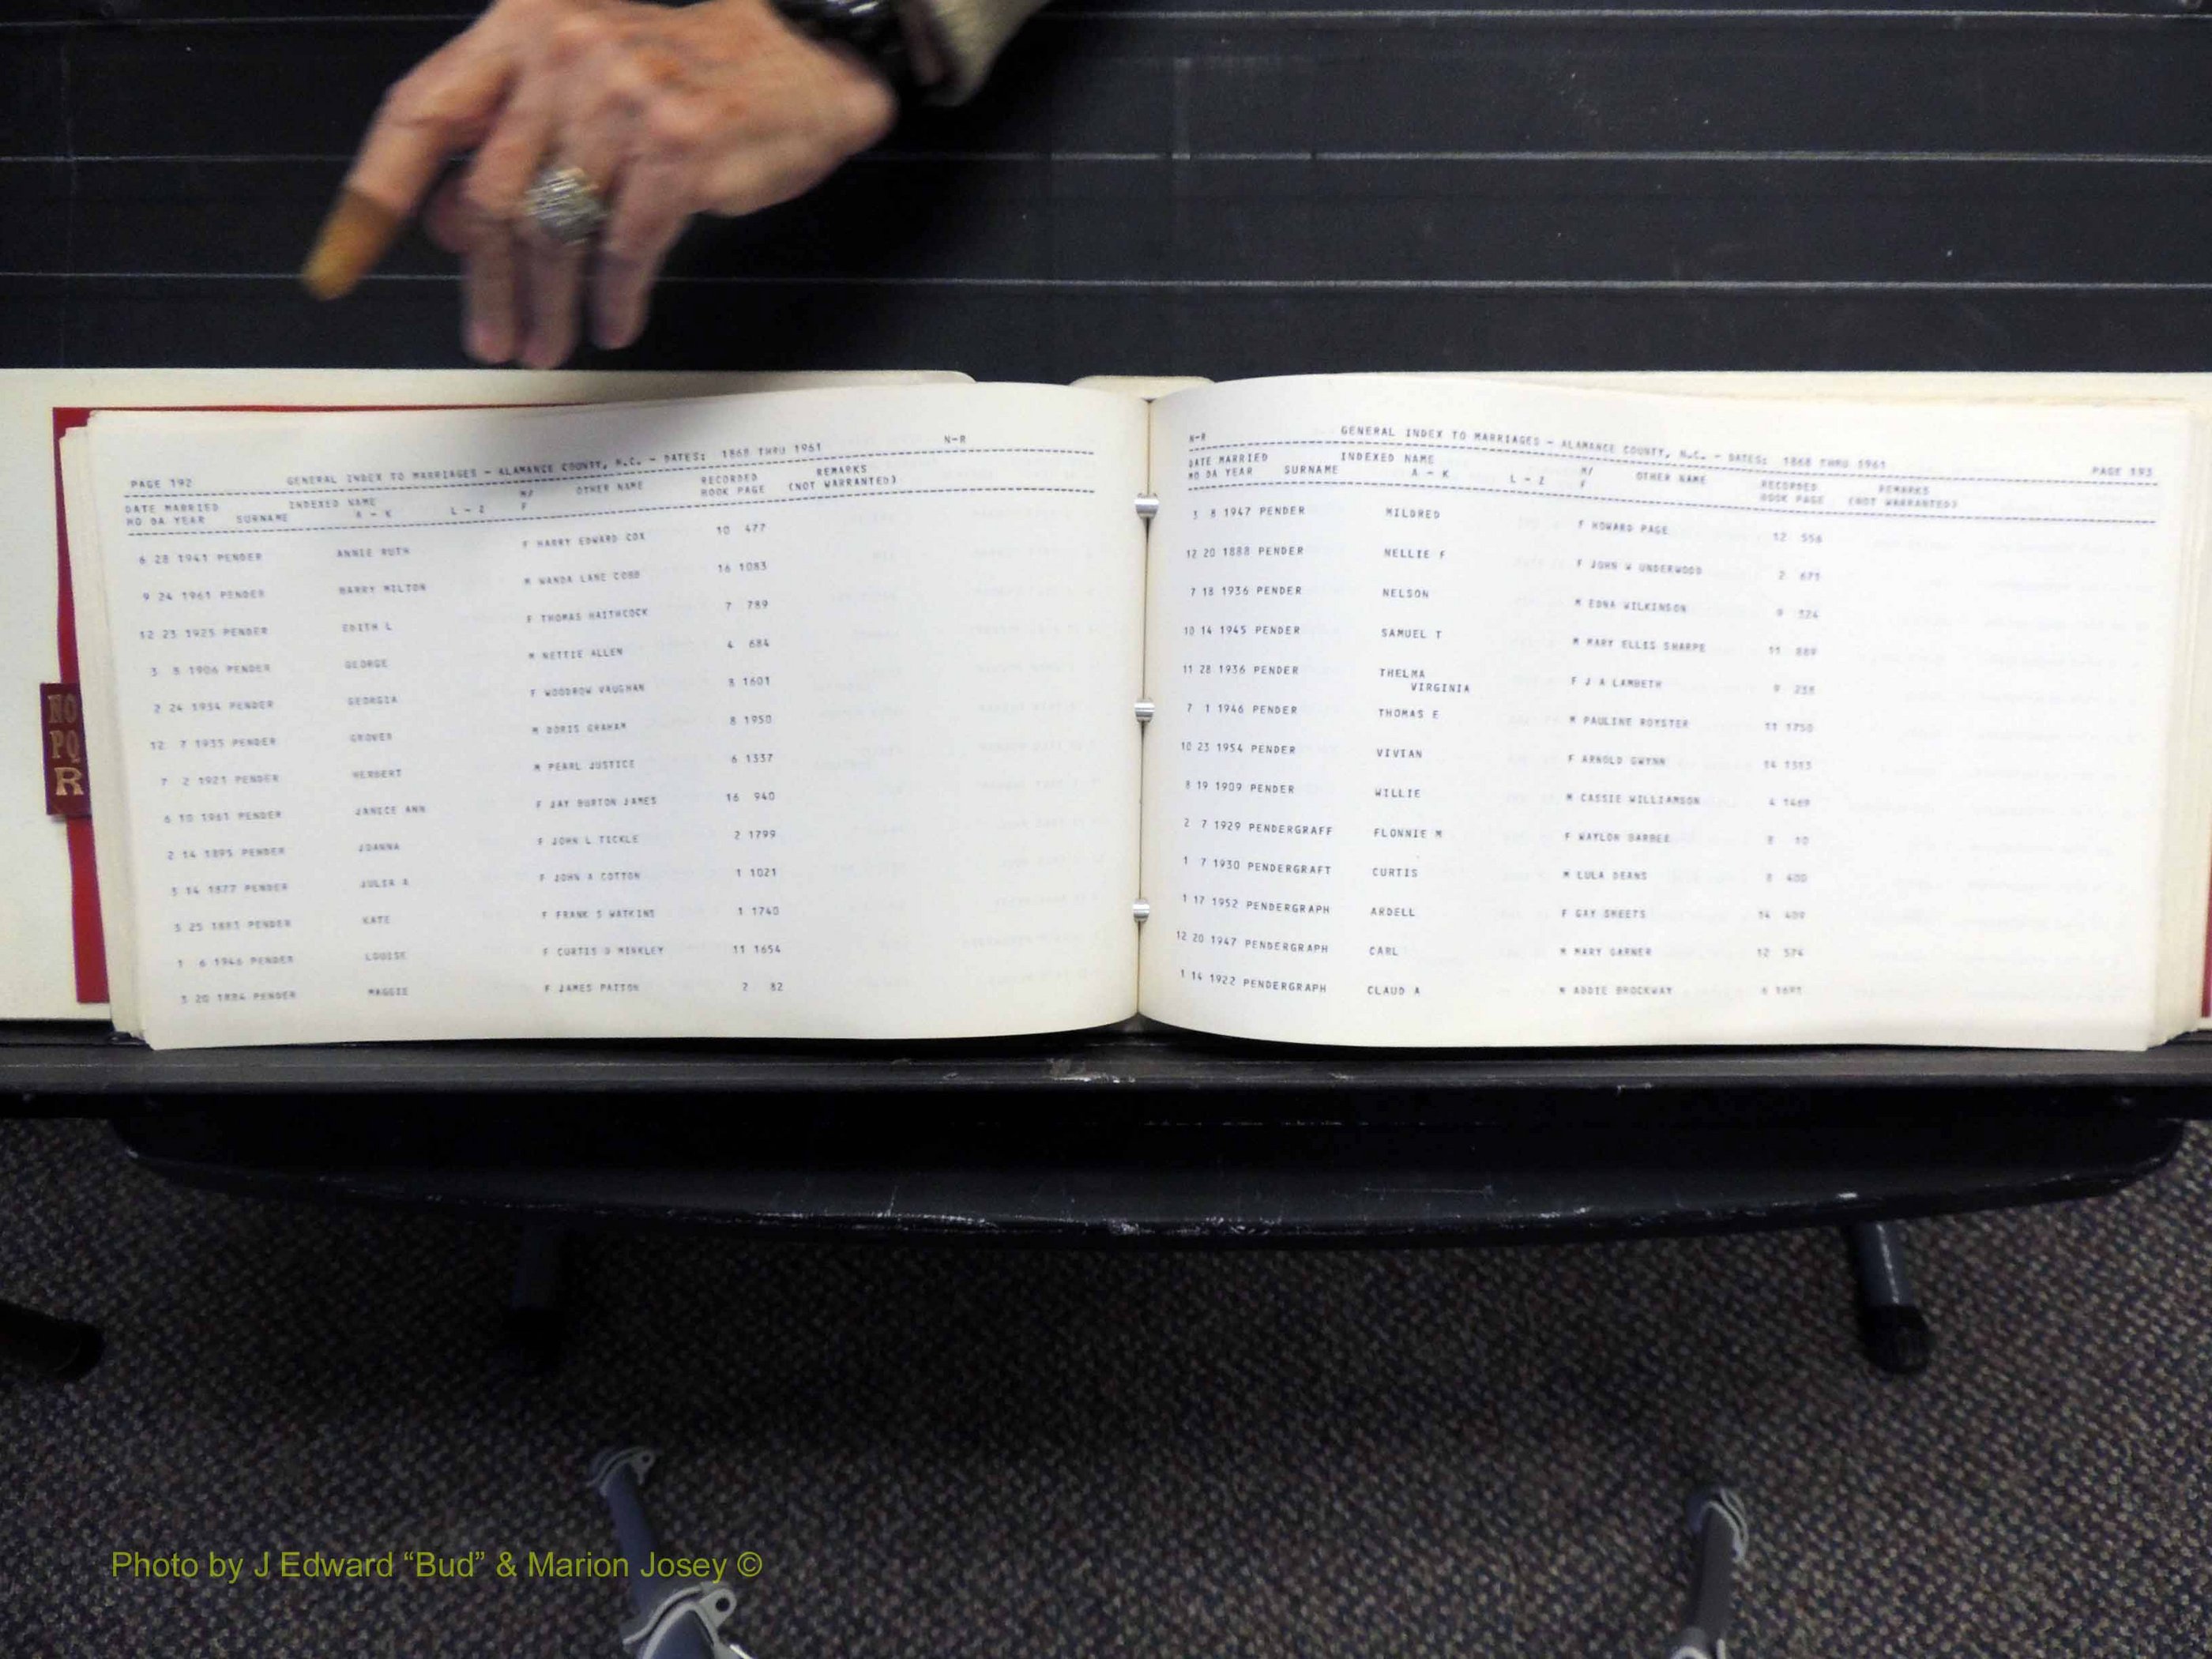 NO
PQ
R
PAGE 192 GENERAL INDEX TO MARRIAGES - ALAMANCE COUNTY, N.C. - DATES: 1868 THRU 1961 N-R
DATE MARRIED INDEXED NAME M/ OTHER NAME RECORDED REMARKS
MO DA YEAR SURNAME A - K L - Z F BOOK PAGE (NOT WARRANTED)
6 28 1941 PENDER ANNIE RUTH F HARRY EDWARD COX 10 477
9 24 1961 PENDER BARRY MILTON M WANDA LANE COBB 16 1083
12 23 1925 PENDER EDITH L F THOMAS HAITHCOCK 7 789
3 8 1906 PENDER GEORGE M NETTIE ALLEN 4 684
2 24 1934 PENDER GEORGIA F WOODROW VAUGHAN 8 1601
12 7 1935 PENDER GROVER M DORIS GRAHAM 8 1950
7 2 1921 PENDER HERBERT M PEARL JUSTICE 6 1337
6 10 1961 PENDER JANICE ANN F JAY BURTON JAMES 16 940
2 14 1895 PENDER JOANNA F JOHN L TICKLE 2 1799
3 14 1877 PENDER JULIA A F JOHN A COTTON 1 1021
3 25 1883 PENDER KATE F FRANK S WATKINS 1 1740
1 6 1946 PENDER LOUISE F CURTIS D MINKLEY 11 1654
3 20 1884 PENDER MAGGIE F JAMES PATTON 2 82
N-R GENERAL INDEX TO MARRIAGES - ALAMANCE COUNTY, N.C. - DATES: 1868 THRU 1961 PAGE 193
DATE MARRIED INDEXED NAME M/ OTHER NAME RECORDED REMARKS
MO DA YEAR SURNAME A - K L - Z F BOOK PAGE (NOT WARRANTED)
3 8 1947 PENDER MILDRED F HOWARD PAGE 12 556
12 20 1888 PENDER NELLIE F F JOHN W UNDERWOOD 2 675
7 18 1936 PENDER NELSON M EDNA WILKINSON 9 324
10 14 1945 PENDER SAMUEL T M MARY ELLIS SHARPE 11 889
11 28 1936 PENDER THELMA F J A LAMBETH 9 238
VIRGINIA
7 1 1946 PENDER THOMAS E M PAULINE ROYSTER 11 1750
10 23 1954 PENDER VIVIAN F ARNOLD GWYNN 14 1383
8 19 1909 PENDER WILLIE M CASSIE WILLIAMSON 4 1469
2 7 1929 PENDERGRAFF FLONNIE M F WAYLON BARBEE 8 10
1 7 1930 PENDERGRAFT CURTIS M LULA DEANS 8 400
1 17 1952 PENDERGRAPH ARDELL F GAY SHEETS 14 409
12 20 1947 PENDERGRAPH CARL M MARY GARNER 12 574
1 14 1922 PENDERGRAPH CLAUD A M ADDIE BROCKWAY 6
Photo by J Edward “Bud” & Marion Josey ©